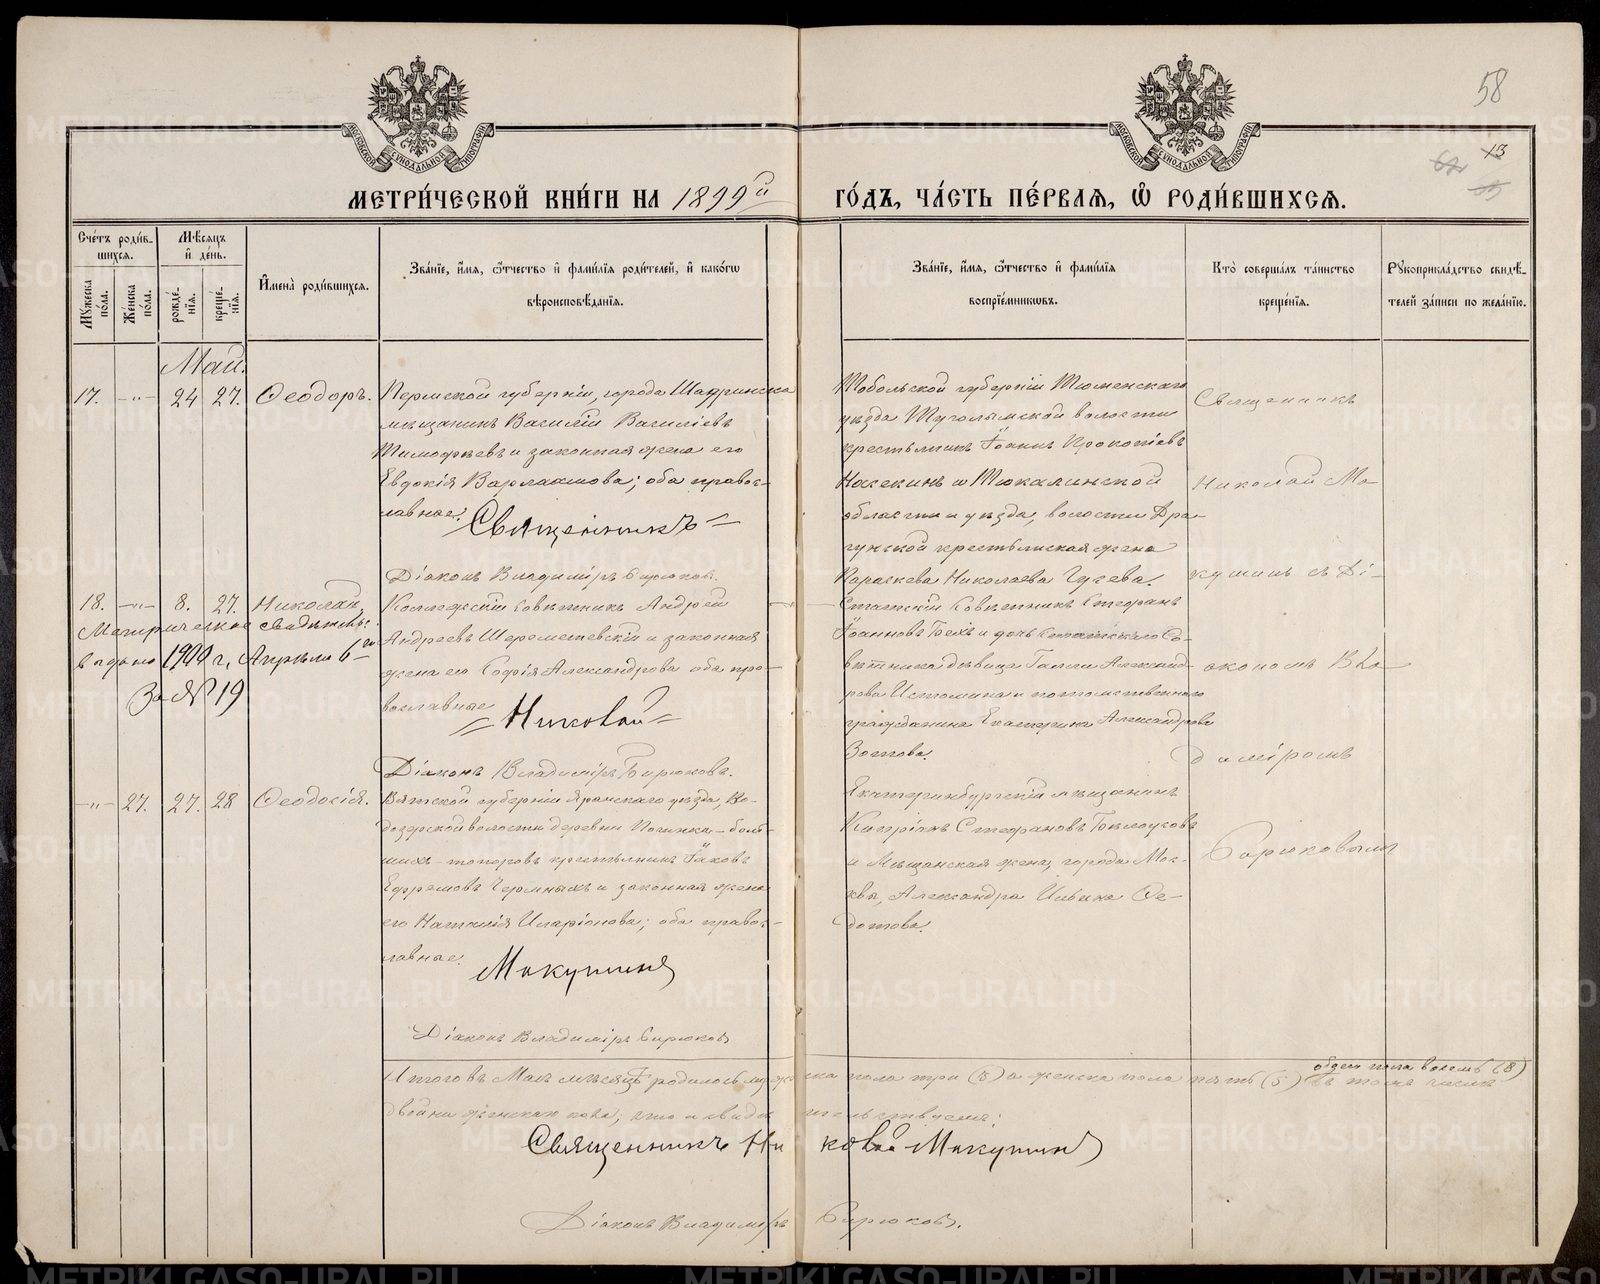 58
13
МЕТРИ́ЧЕСКОЙ КНИ́ГИ НА 1899й ГО́ДЪ, ЧА́СТЬ ПЕ́РВАЯ, Ѡ РОДИ́ВШИХСЯ.
Сче́тъ роди́вшихся.
Мѣ́сяцъ и҆ де́нь.
Му́жеска по́ла.
Же́нска по́ла.
рожде́нїя.
креще́нїя.
И҆мена̀ роди́вшихся.
Зва́нїе, и҆́мя, ѻ҆́тчество и҆ фами́лїя роди́телей, и҆ како́гѡ
вѣроисповѣ́данїя.
Зва́нїе, и҆́мя, ѻ҆́тчество и҆ фами́лїя
воспрїе́мниковъ.
Кто̀ соверша́лъ та́инство
креще́нїя.
Рꙋкоприкла́дство свидѣ́-
телей за́писи по жела́нїю.
Май.
17. -"- 24 27. Ѳеодоръ.
Пермской губерніи, города Шадринска
мѣщанинъ Василій Василіевъ
Тимофѣевъ и законная жена его
Евдокія Варлаамова; оба правос-
лавные.
Священникъ
Діаконъ Владиміръ Бирюковъ.
Тобольской губерніи Тюменскаго
уѣзда Тугулымской волости
крестьянинъ Іоаннъ Прокопіевъ
Насекинъ и Тюкалинской
области и уѣзда, волости Дра-
гунской крестьянская жена
Параскева Николаева Гусева.
Священникъ
Николай Ма-
кушинъ съ Ді-
акономъ Вла-
диміромъ
Бирюковымъ
18. -"- 8. 27. Николай,
Метрическое свидѣтельс.
выдано 1900 г, Апрѣля 6го
За № 19
Коллежскій совѣтникъ Андрей
Андреевъ Шереметевскій и законная
жена его Софія Александрова оба пра-
вославные
Николай
Діаконъ Владиміръ Бирюковъ.
Статскій Совѣтникъ Стефанъ
Іоанновъ Грехъ и дочь Статскаго Со-
вѣтника дѣвица Александ-
рова Истомина и потомственнаго
гражданина Екатерина Александрова
Зотова.
-"- 27. 27. 28 Ѳеодосія.
Вятской губерніи Яранскаго уѣзда, Ко-
дозерской волости деревни Починка-боль-
шихъ-топоровъ крестьянинъ Іаковъ
Ефремовъ Чермныхъ и законная жена
его Наталія Иларіонова; оба правос-
лавные.
Макушинъ
Діаконъ Владиміръ Бирюковъ
Екатеринбургскій мѣщанинъ
Стефановъ Голоуховъ
и Мѣщанская жена, города Мос-
квы, Александра Ильина Ѳе-
дотова.
Итого въ Маѣ мѣсяцѣ родилось мужеска пола три (3) а женска пола пять (5) обоего пола восемь (8) въ томъ числѣ
двойни женскаго пола; что и свидетельствуемъ:
Священникъ Николай Макушинъ
Діаконъ Владиміръ Бирюковъ.